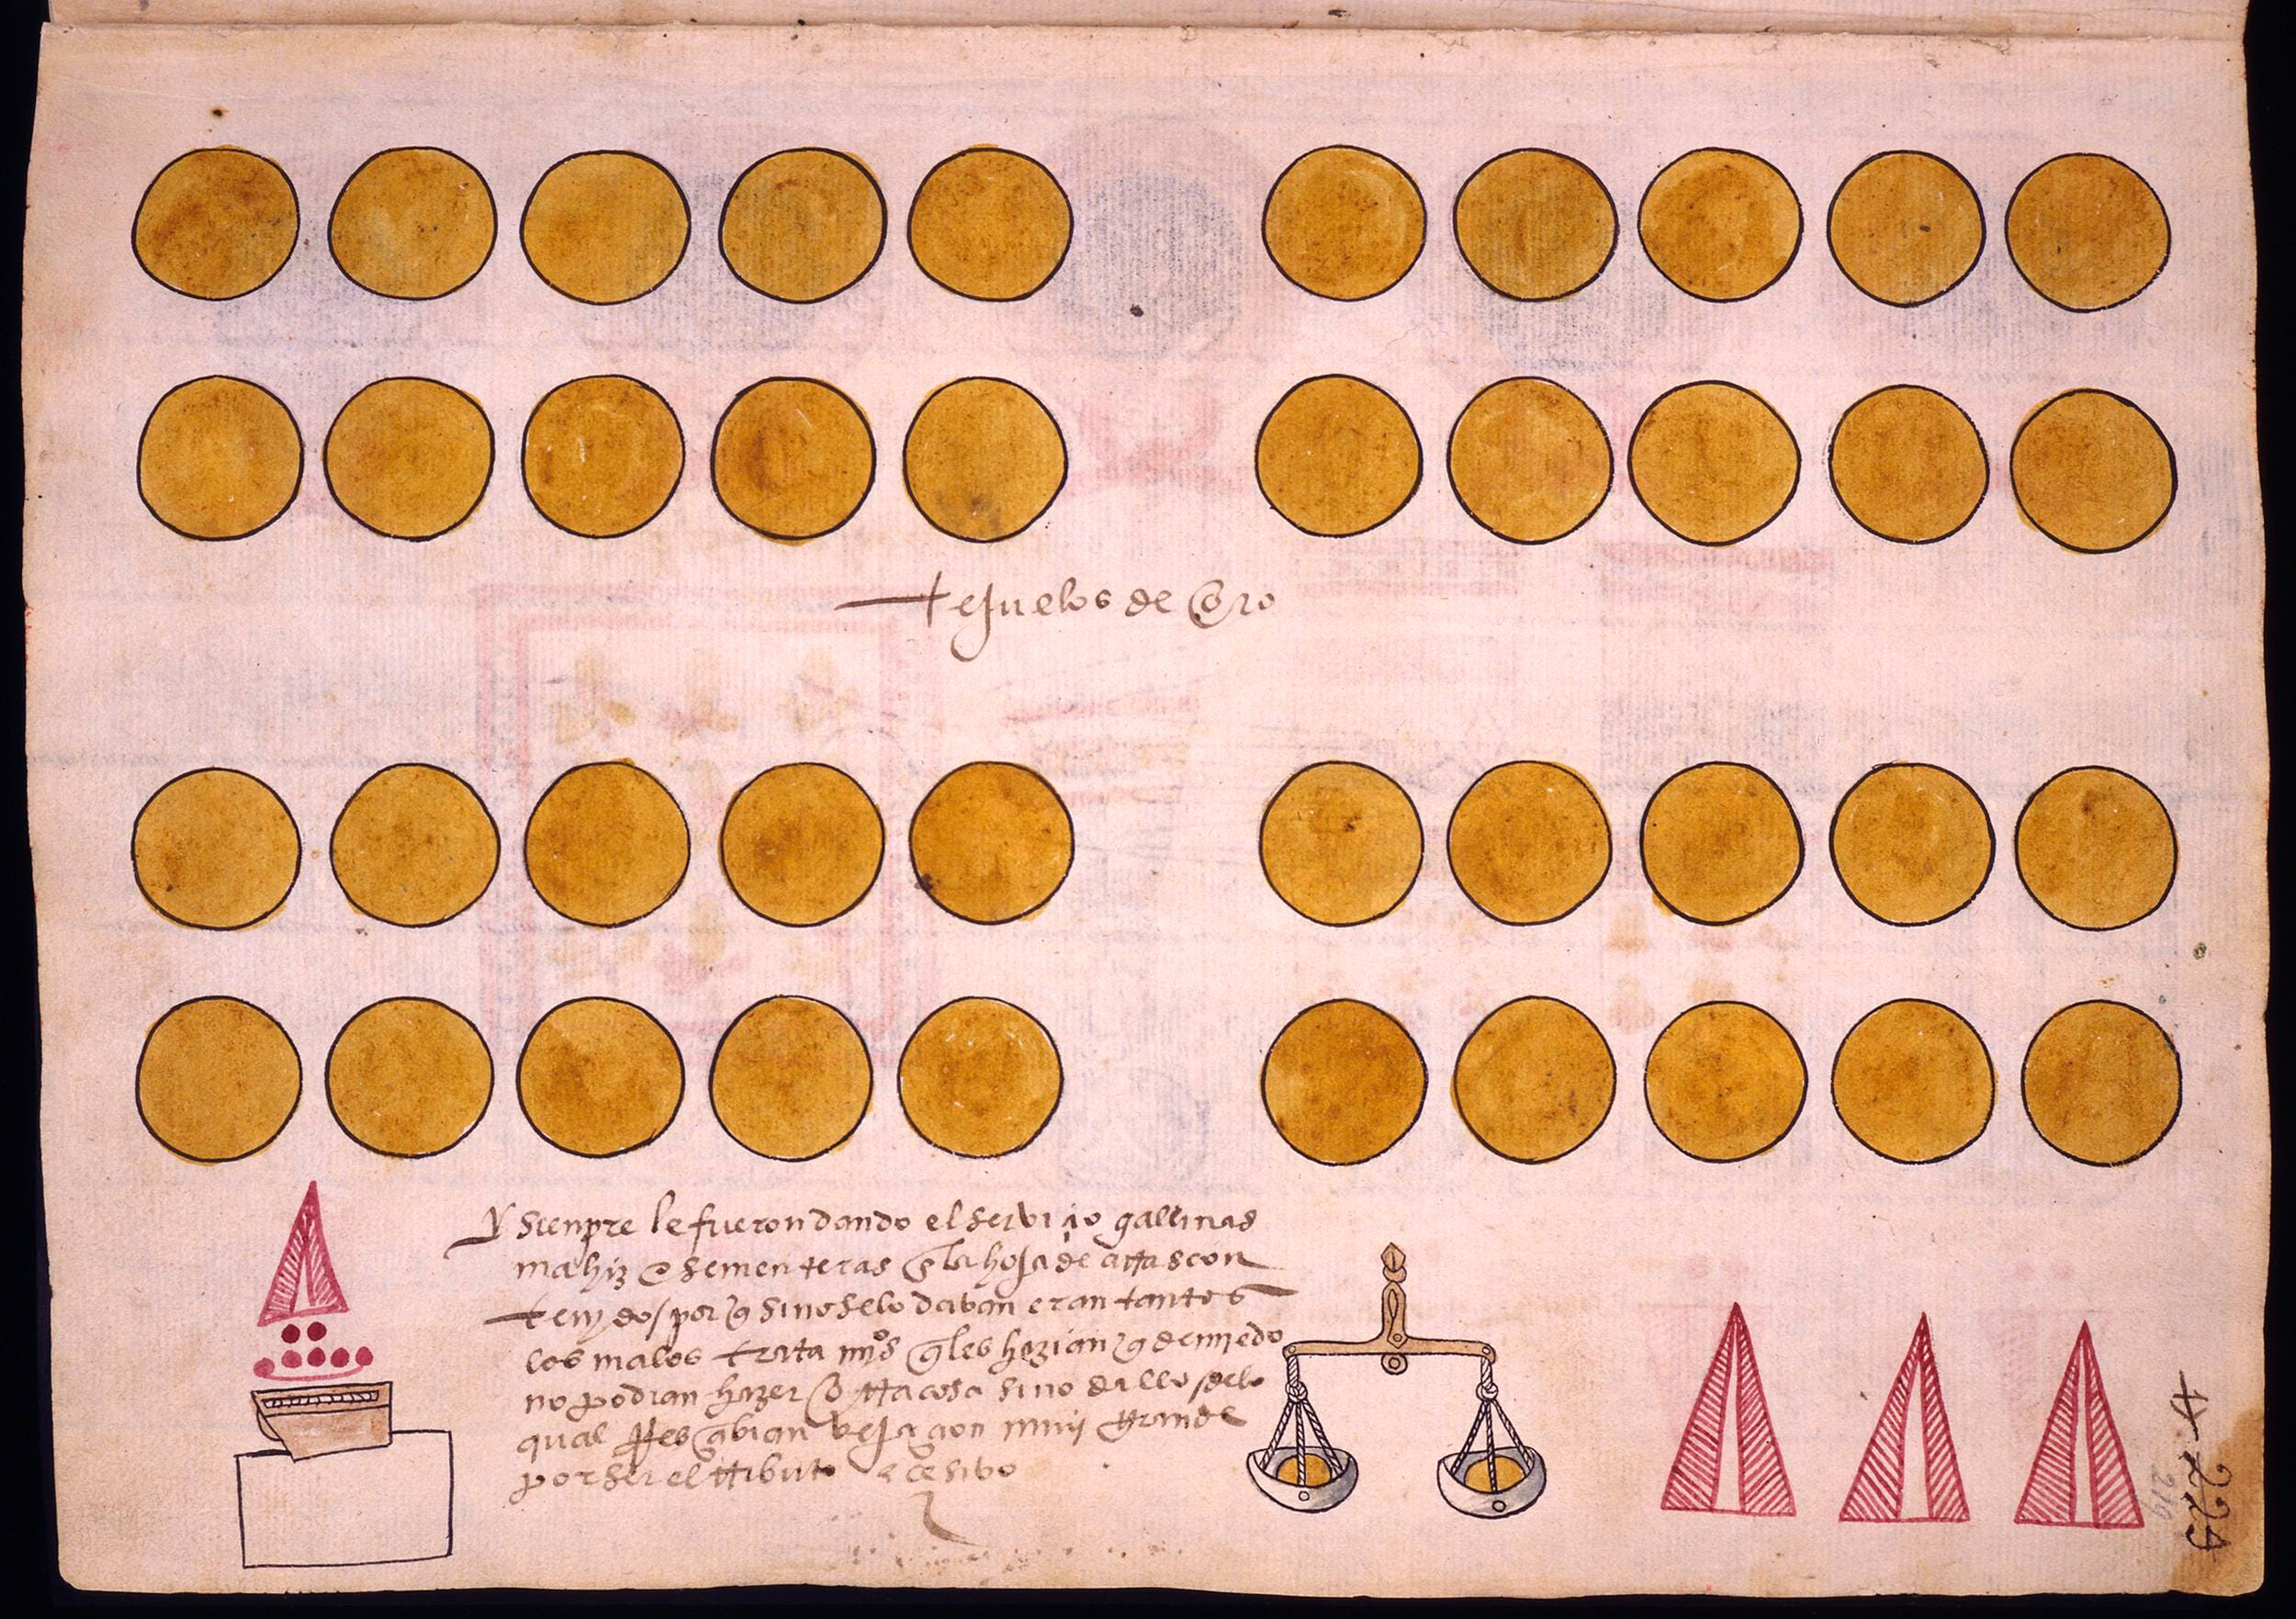 tejuelos de Oro
Y sienpre le fueron dando el servi io gallinas
mahiz e sementeras q̃ la hoja de atta scon
tenydo / por q̃ si no se lo davan eran tantos
los malos trata myºs q̃ les hazian q̃ de miedo
no podian hazer Otta cosa sino dallo / de lo
qual Resçabian vejaçion muy grande
por ser el tributo eçesibo
224
219